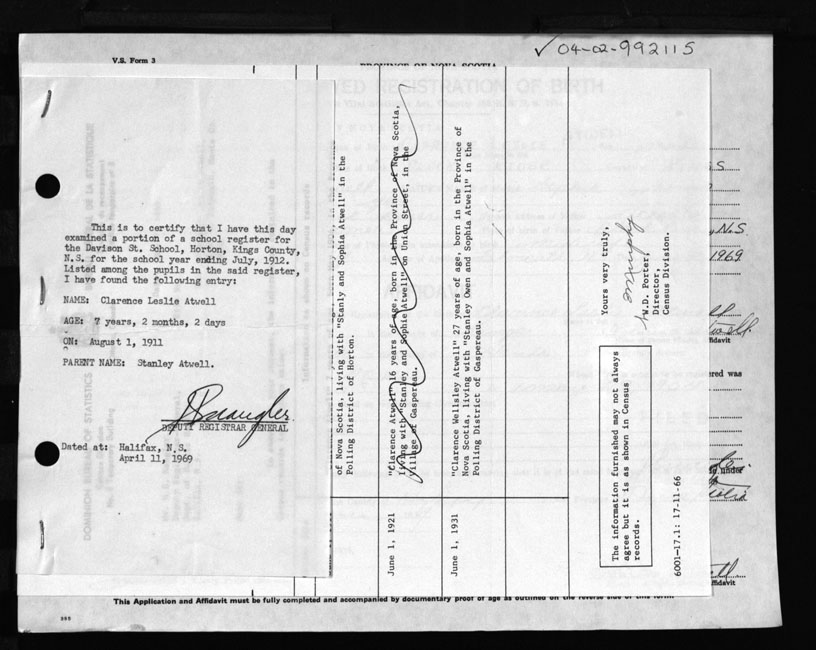 ✓04-02-992115
V.S. Form 3
PROVINCE OF NOVA SCOTIA
REGISTRATION OF BIRTH
This is to certify that I have this day
examined a portion of a school register for
the Davison St. School, Horton, Kings County,
N.S. for the school year ending July, 1912.
Listed among the pupils in the said register,
I have found the following entry:
NAME: Clarence Leslie Atwell
AGE: 7 years, 2 months, 2 days
ON: August 1, 1911
PARENT NAME: Stanley Atwell.
DEPUTY REGISTRAR GENERAL
Dated at: Halifax, N.S.
April 11, 1969
of Nova Scotia, living with "Stanly and Sophia Atwell" in the
Polling District of Horton.
June 1, 1921
"Clarence Atwell" 16 years of age, born in the Province of Nova Scotia,
living with "Stanley and Sophie Atwell" on Union Street, in the
Village of Gaspereau.
June 1, 1931
"Clarence Wellsley Atwell" 27 years of age, born in the Province of
Nova Scotia, living with "Stanley Owen and Sophia Atwell" in the
Polling District of Gaspereau.
Yours very truly,
W.D. Porter,
Director,
Census Division.
The information furnished may not always
agree but it is as shown in Census
records.
6001-17.1: 17-11-66
N.S.
1969
fidavit
ered was
under
Affidavit
This Application and Affidavit must be fully completed and accompanied by documentary proof of age as outlined on the reverse side of this form.